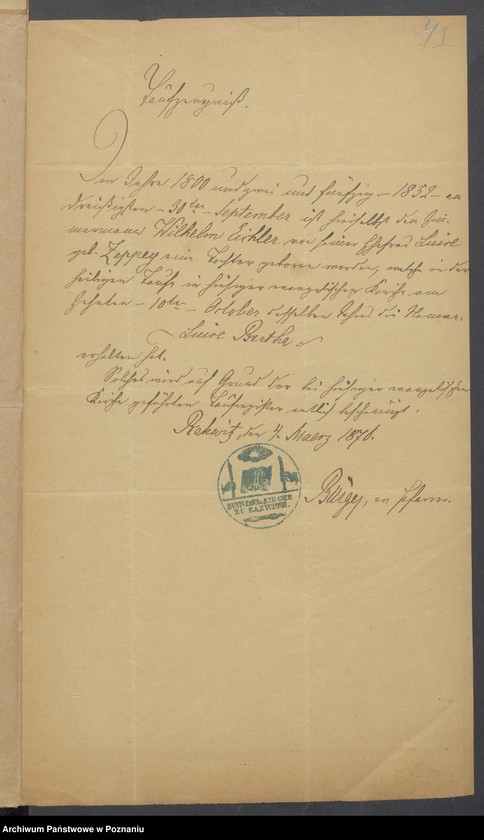 41
Taufzeugniß.
Im Jahre 1800 und zwei und fünfzig – 1852 – am
dreißigsten – 30ten – September ist hierselbst dem Zim-
mermann Wilhelm Eichler von seiner Ehefrau Luise
geb. Zeppey eine Tochter geboren worden, welche in der
heiligen Taufe in hiesiger evangelischer Kirche am
zehnten – 10ten – October desselben Jahres die Namen:
Luise Bertha
erhalten hat.
Solches wird auf Grund der bei hiesiger evangelischen
Kirche geführten Taufregister amtlich bescheinigt.
Rakwitz, den 4. Maerz 1876.
KIRCHE
ZU RAKWITZ.
Bürger, ev. Pfarrer.
Archiwum Państwowe w Poznaniu